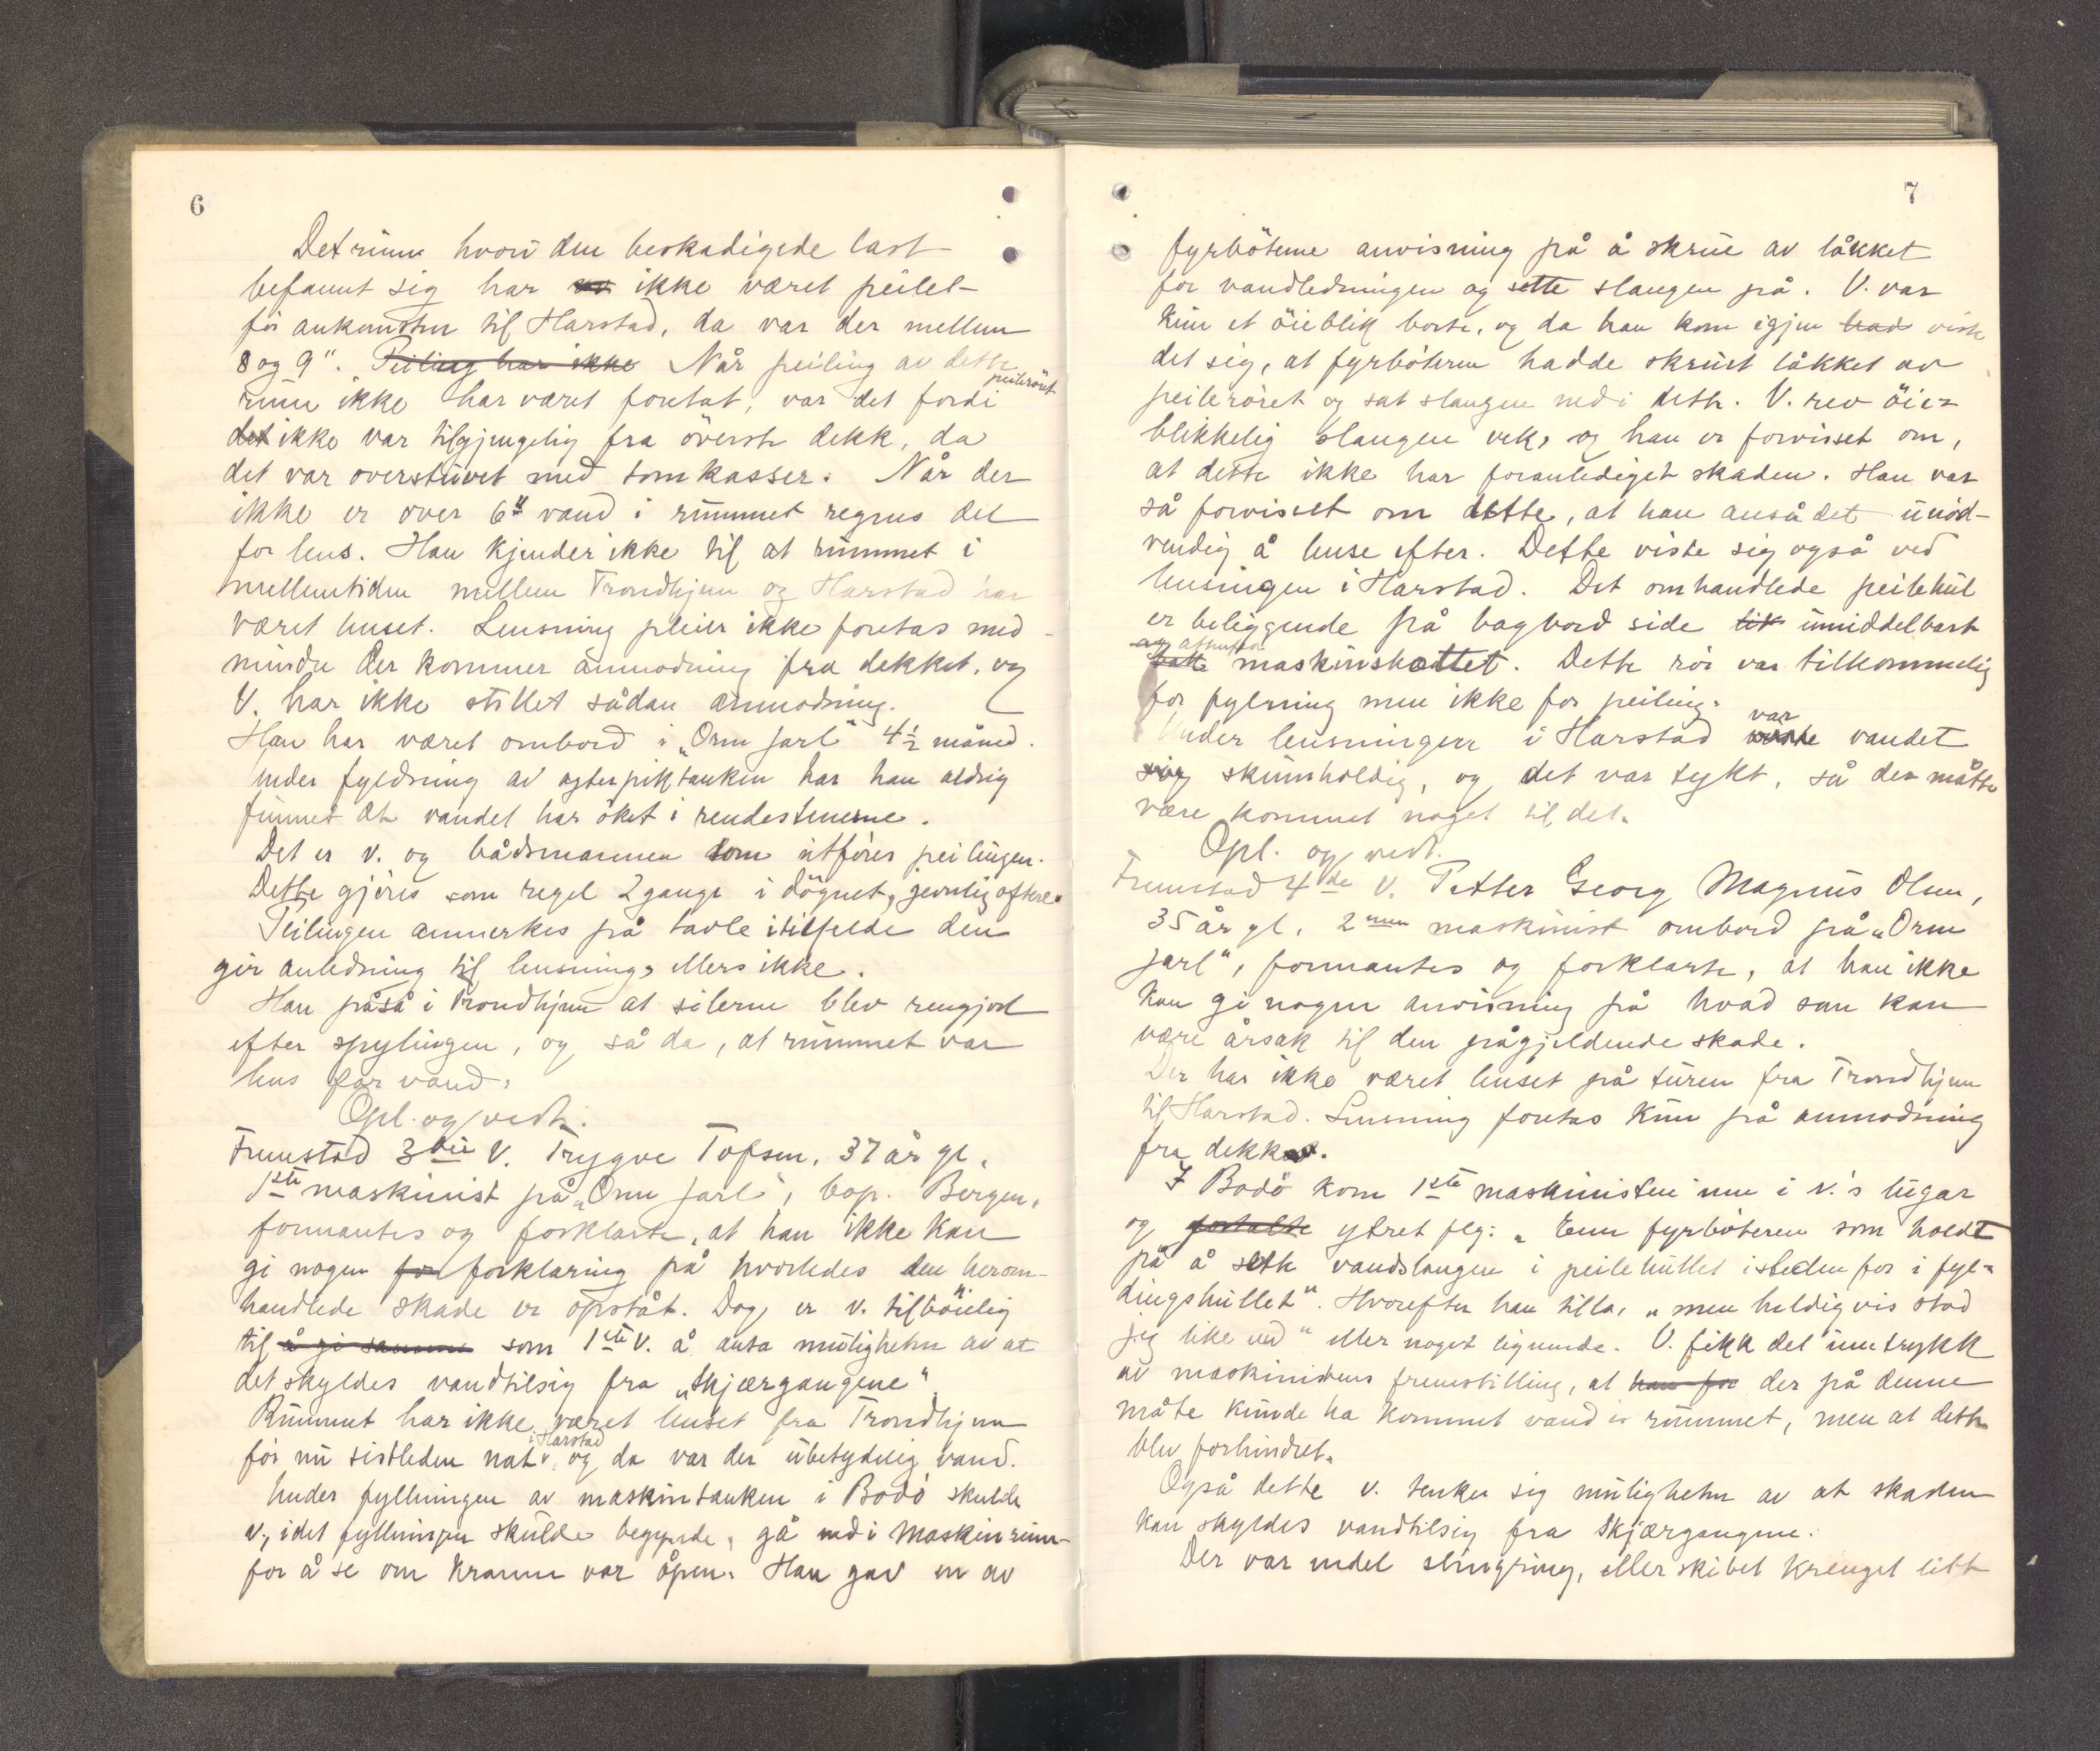 6
Det rum hvori den beskadigede last
befannt sig har ikke været peilet
før ankomsten til Harstad, da var der mellem
8 og 9". Peiling har ikke Når peiling av dette
rum ikke har været foretat, var det fordi peilerøret
det ikke var tilgjengelig fra øverste dekk, da
det var overstuvet med tomkasser. Når der
ikke er over 6" vand i rummet regnes det
for lens. Han kjender ikke til at rummet i
mellemtiden mellem Trondhjem og Harstad har
været lenset. Lensning pleier ikke foretas med-
mindre der kommer anmodning fra dekket, og
V. har ikke stillet sådan anmodning.
Han har været ombord i „Orm Jarl" 4½ måned.
Under fyldning av agterpiktanken har han aldrig
funnet at vandet har øket i rendestenene.
Det er v. og båtsmannen som utfører peilingen.
Dette gjøres som regel 2 gange i døgnet, jevnlig oftere.
Peilingen anmerkes på tavle i tilfelde den
gir anledning til lensning, ellers ikke.
Han påså i Trondhjem at silerne blev rengjort
efter spylingen, og så da, at rummet var
lens for vand.
Opl. og vedt.
Fremstod 3die V. Trygve Tofsen, 37 år gl.,
1ste maskinist på „Orm Jarl", bop. Bergen,
formantes og forklarte, at han ikke kan
gi nogen for forklaring på hvorledes den herom-
handlede skade er opståt. Dog er v. tilbøielig
til å gi samme som 1ste V. å anta muligheten av at
det skyldes vandtilsig fra „Skjærgangene"
Rummet har ikke været lenset fra Trondhjem
i Harstad
før nu sistleden nat, og da var der ubetydelig vand.
Under fyllningen av maskintanken i Bodö skulde
v., idet fyllningen skulde begynde, gå ned i maskinrum-
for å se om kranen var åpen. Han gav en av
7
fyrbøterne anvisning på å skrue av låkket
for vandledningen og sette slangen på. V. var
kun et öieblik borte, og da han kom igjen had viste
det sig, at fyrbøteren hadde skruet låkket av
peilerøret og sat slangen ned i dette. V. rev öie-
blikkelig slangen vek, og han er forvisset om,
at dette ikke har foranlediget skaden. Han var
så forvisset om dette, at han anså det unød-
vendig å lense efter. Dette viste sig også ved
lensingen i Harstad. Det omhandlede peilehul
er beliggende på bagbord side umiddelbart
maskinskottet. Dette rör var tilkommelig
for fylning men ikke for peiling.
Under lensningen i Harstad var viste vandet
sig skumholdig, og det var tykt, så der måtte
være kommet noget til det.
Opl. og vedt.
Fremstod 4de V. Petter Georg Magnus Olsen,
35 år gl., 2nen maskinist ombord på „Orm
Jarl", formantes og forklarte, at han ikke
kan gi nogen anvisning på hvad som kan
være årsak til den pågjeldende skade.
Der har ikke været lenset på turen fra Trondhjem
til Harstad. Lensning foretas kun på anmodning
fra dekket.
I Bodö kom 1ste maskinisten inn i v.'s lugar
og fortalte ytret flg: „ Enn fyrbøteren som holdt
på å sette vandslangen i peilehullet istedenfor i fyl-
dingshullet". Hvorefter han tilla, „men heldigvis stod
jeg like ved" eller noget lignende. V. fikk det inntrykk
av maskinistens fremstilling, at han for der på denne
måte kunde ha kommet vand i rummet, men at dette
blev forhindret.
Også dette v. tenker sig muligheten av at skaden
kan skyldes vandtilsig fra Skjærgangene.
Der var endel slingring, eller skibet krenget litt